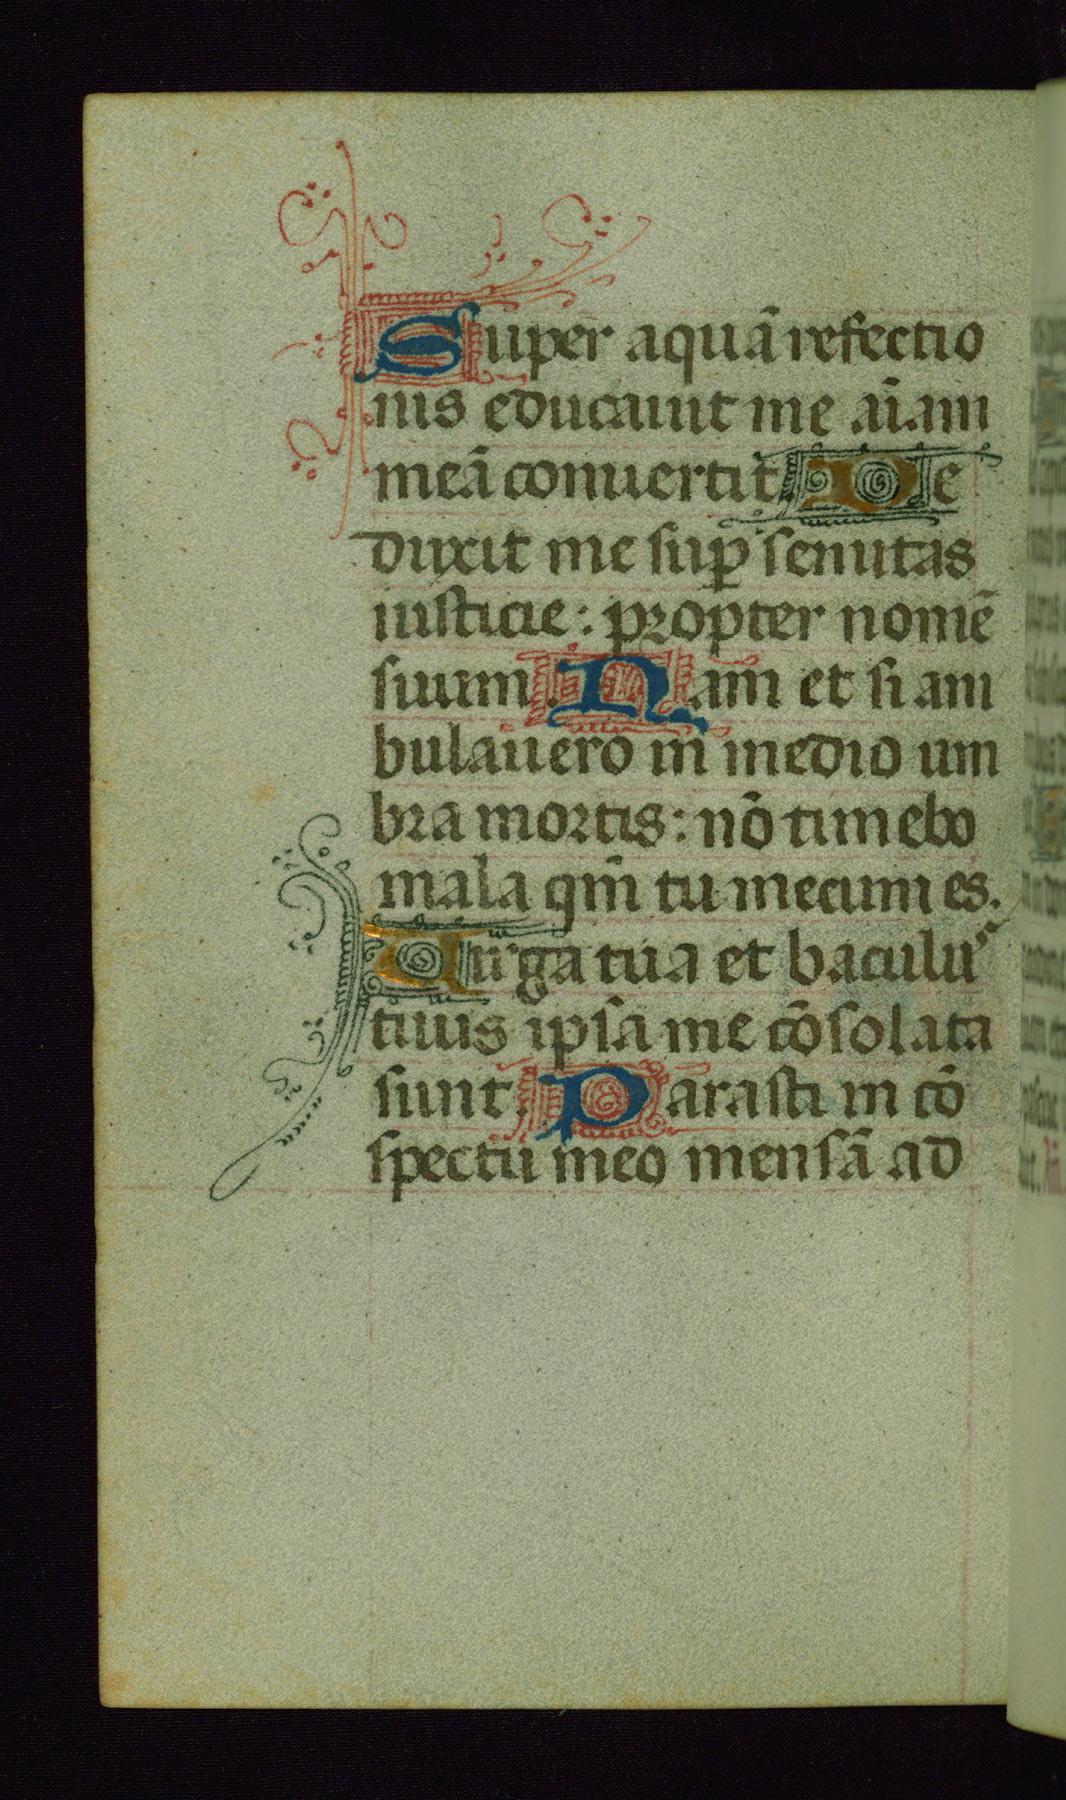 Super aquā refectio
nis educauit me aīam
meā conuertit. De
duxit me suꝑ semitas
iusticie: propter nomē
suum. Nam et si am
bulauero in medio um
bra mortis: nō timebo
mala qm̄ tu mecum es.
Uirga tua et baculus
tuus ipsa me cōsolata
sunt. Parasti in cō
spectu meo mensā ad